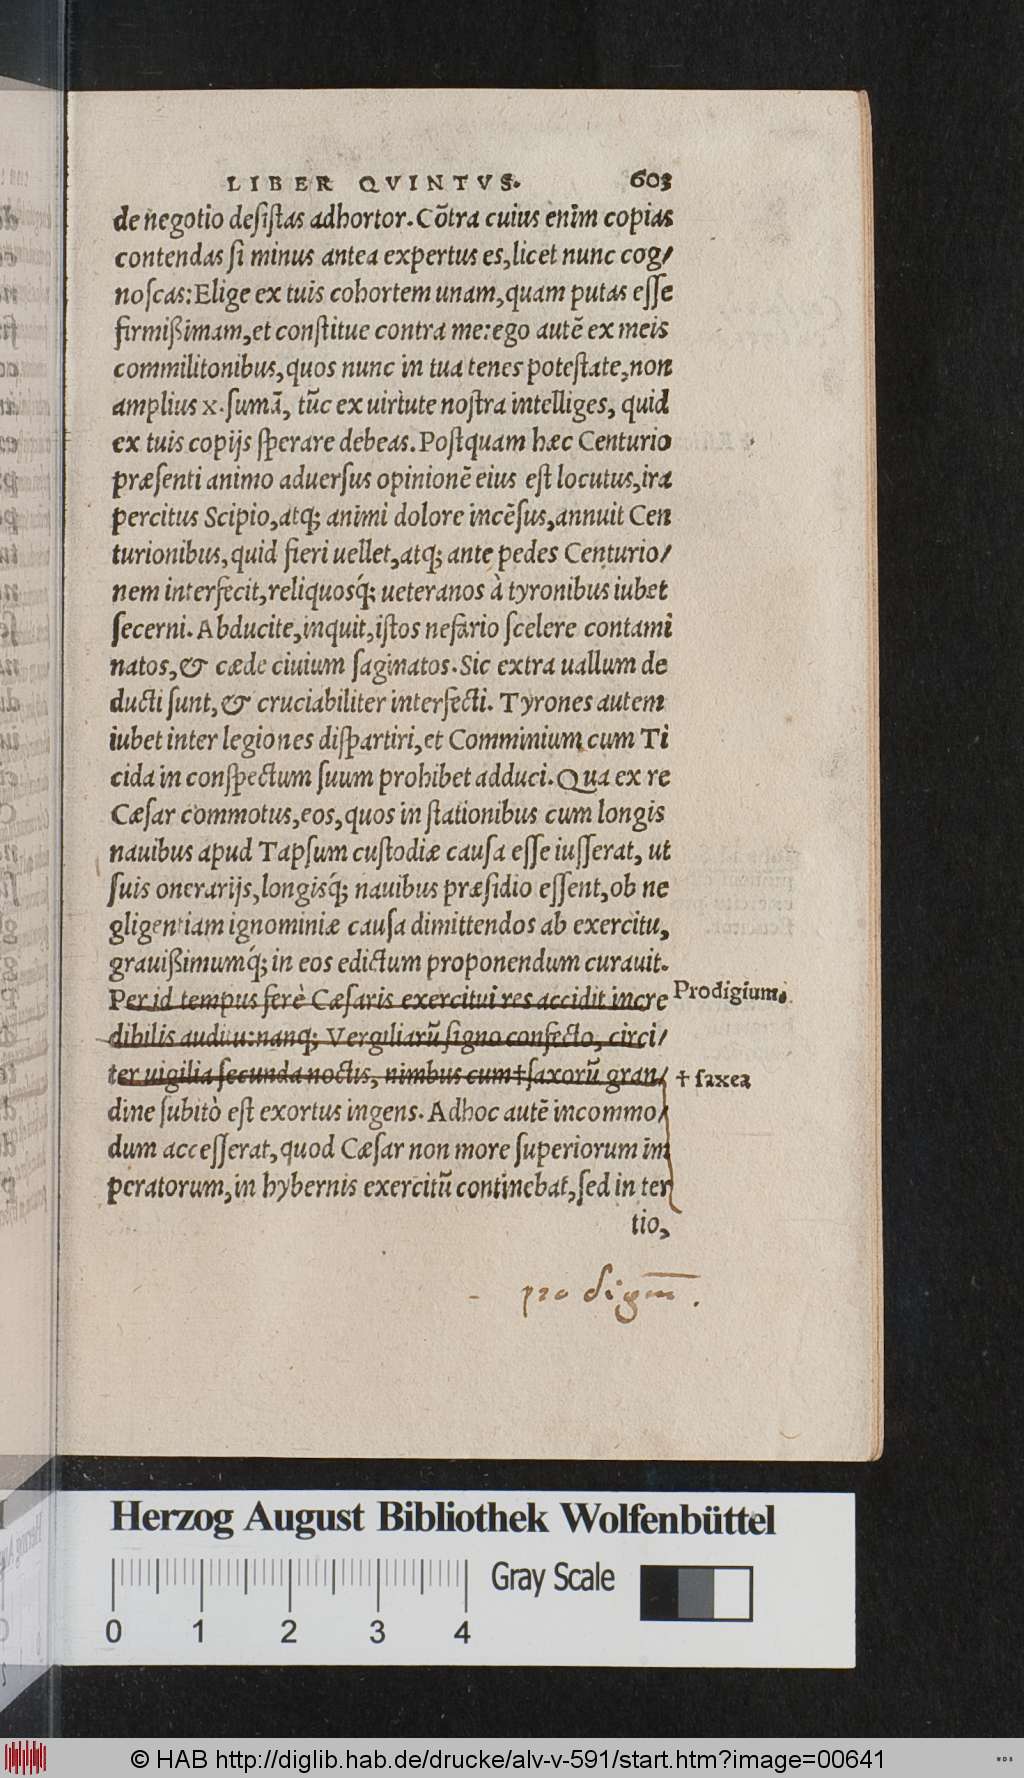 LIBER QVINTVS. 603
de negotio desistas adhortor. Cōtra cuius enim copias
contendas si minus antea expertus es, licet nunc cog/
noscas: Elige ex tuis cohortem unam, quam putas esse
firmißimam, et constitue contra me: ego autē ex meis
commilitonibus, quos nunc in tua tenes potestate, non
amplius x. sumā, tūc ex uirtute nostra intelliges, quid
ex tuis copijs sperare debeas. Postquam hæc Centurio
præsenti animo aduersus opinionē eius est locutus, ira
percitus Scipio, atq; animi dolore incēsus, annuit Cen
turionibus, quid fieri uellet, atq; ante pedes Centurio/
nem interfecit, reliquosq́; ueteranos à tyronibus iubet
secerni. Abducite, inquit, istos nefario scelere contami
natos, & cæde ciuium saginatos. Sic extra uallum de
ducti sunt, & cruciabiliter interfecti. Tyrones autem
iubet inter legiones dispartiri, et Comminium cum Ti
cida in conspectum suum prohibet adduci. Qua ex re
Cæsar commotus, eos, quos in stationibus cum longis
nauibus apud Tapsum custodiæ causa esse iusserat, ut
suis onerarijs, longisq́; nauibus præsidio essent, ob ne
gligentiam ignominiæ causa dimittendos ab exercitu,
grauißimumq́; in eos edictum proponendum curauit.
Per id tempus ferè Cæsaris exercitui res accidit incre
Prodigium.
dibilis auditu: nanq; Vergiliarū signo confecto, circi/
ter uigilia secunda noctis, nimbus cum † saxorū gran/
† saxea
dine subitò est exortus ingens. Adhoc autē incommo/
dum accesserat, quod Cæsar non more superiorum im
peratorum, in hybernis exercitū continebat, sed in ter
tio,
prodigm̄.
Herzog August Bibliothek Wolfenbüttel
Gray Scale
0 1 2 3 4
© HAB http://diglib.hab.de/drucke/alv-v-591/start.htm?image=00641